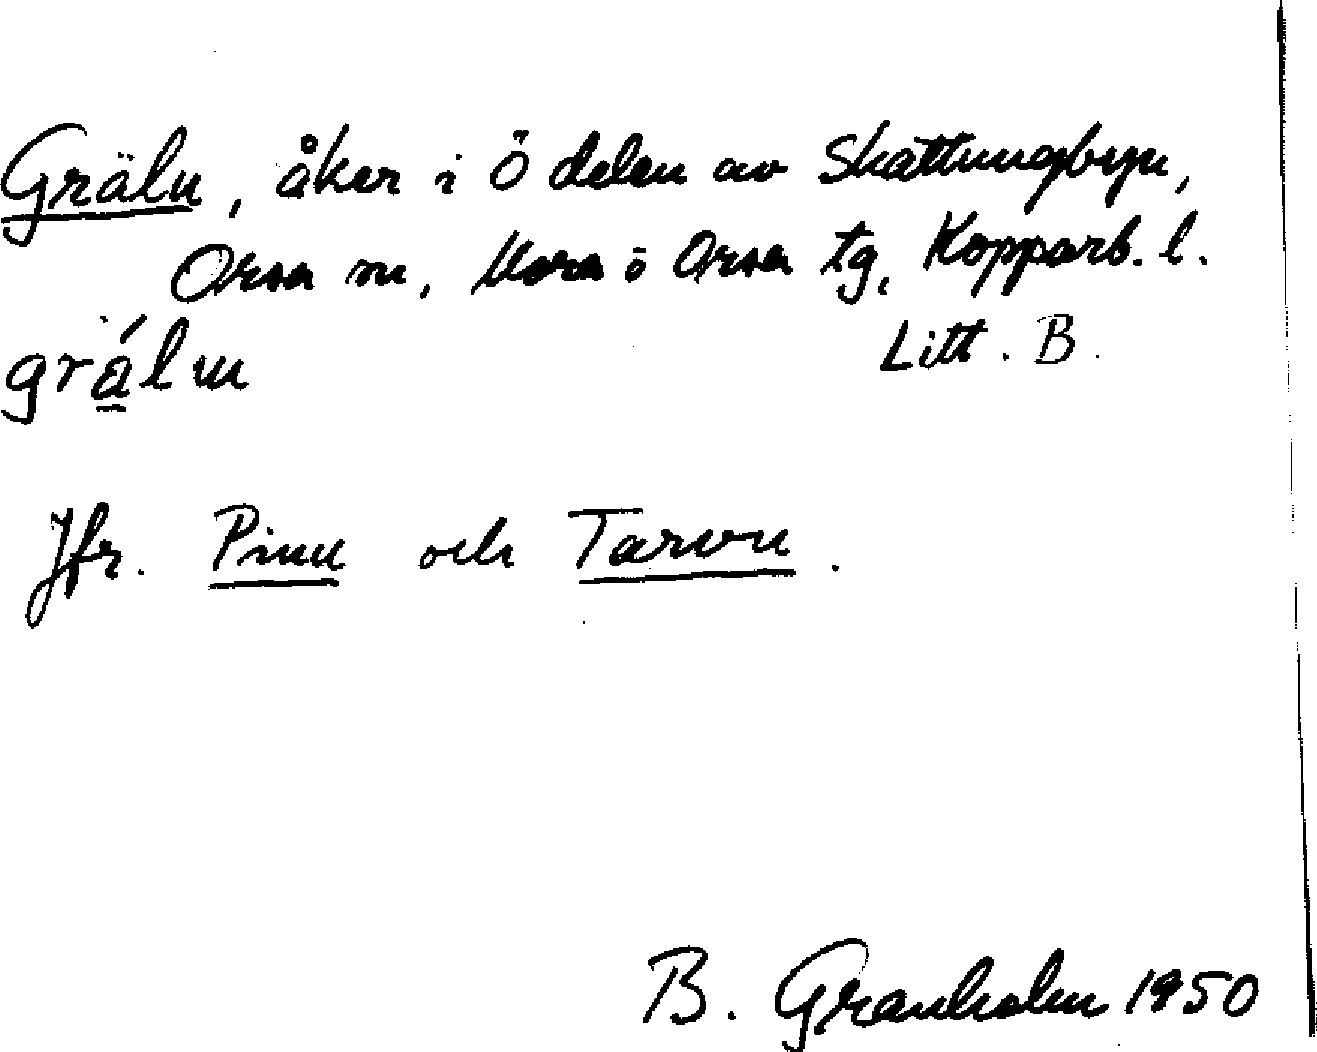 Gräln, åker i Ö delen av Skattungbyn,
Orsa sn, Mora ö Orsa tg, Kopparb. l.
Litt. B.
Jfr. Pinn och Tarvn.
B. Granholm 1950